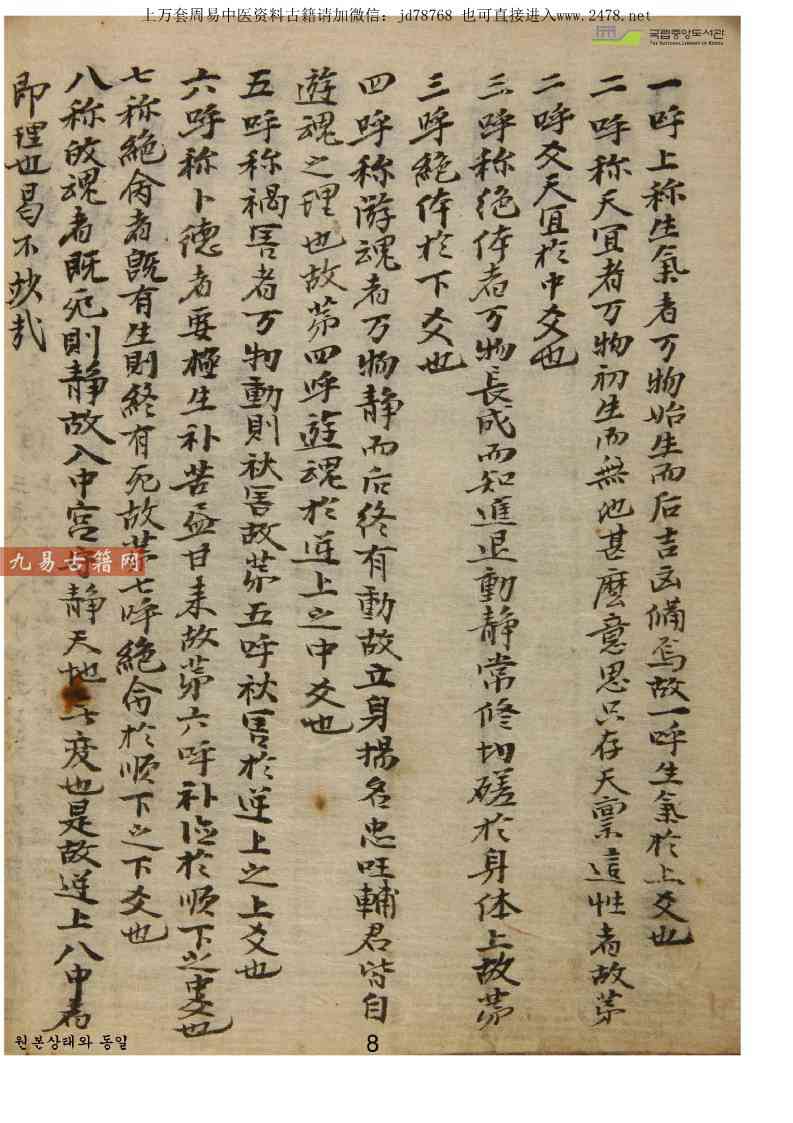 上万套周易中医资料古籍请加微信：jd78768 也可直接进入www.2478.net
국립중앙도서관
THE NATIONAL LIBRARY OF KOREA
一呼上称生氣者万物始生而后吉凶備焉故一呼生氣於上爻也
二呼称天冝者万物初生而無他甚麽意思只存天禀這性者故苐
二呼爻天冝於中爻也
三呼称绝体者万物長成而知進退動静常修切磋於身体上故苐
三呼絶体於下爻也
四呼称游魂者万物静而后终有動故立身揚名忠旺輔君皆自
遊魂之理也故苐四呼遊魂於逆上之中爻也
五呼称禍害者万物動則祅害故苐五呼祅害於逆上之上爻也
六呼称卜德者要極生补苦益甘来故苐六呼补德於順下之中爻也
七称絶命者旣有生則終有死故苐七呼絶命於順下之下爻也
八称故魂者既死則静故入中宫 静天地 度也是故逆上八中者
即理也曷不妙哉
九易古籍网
원본상태와 동일
8